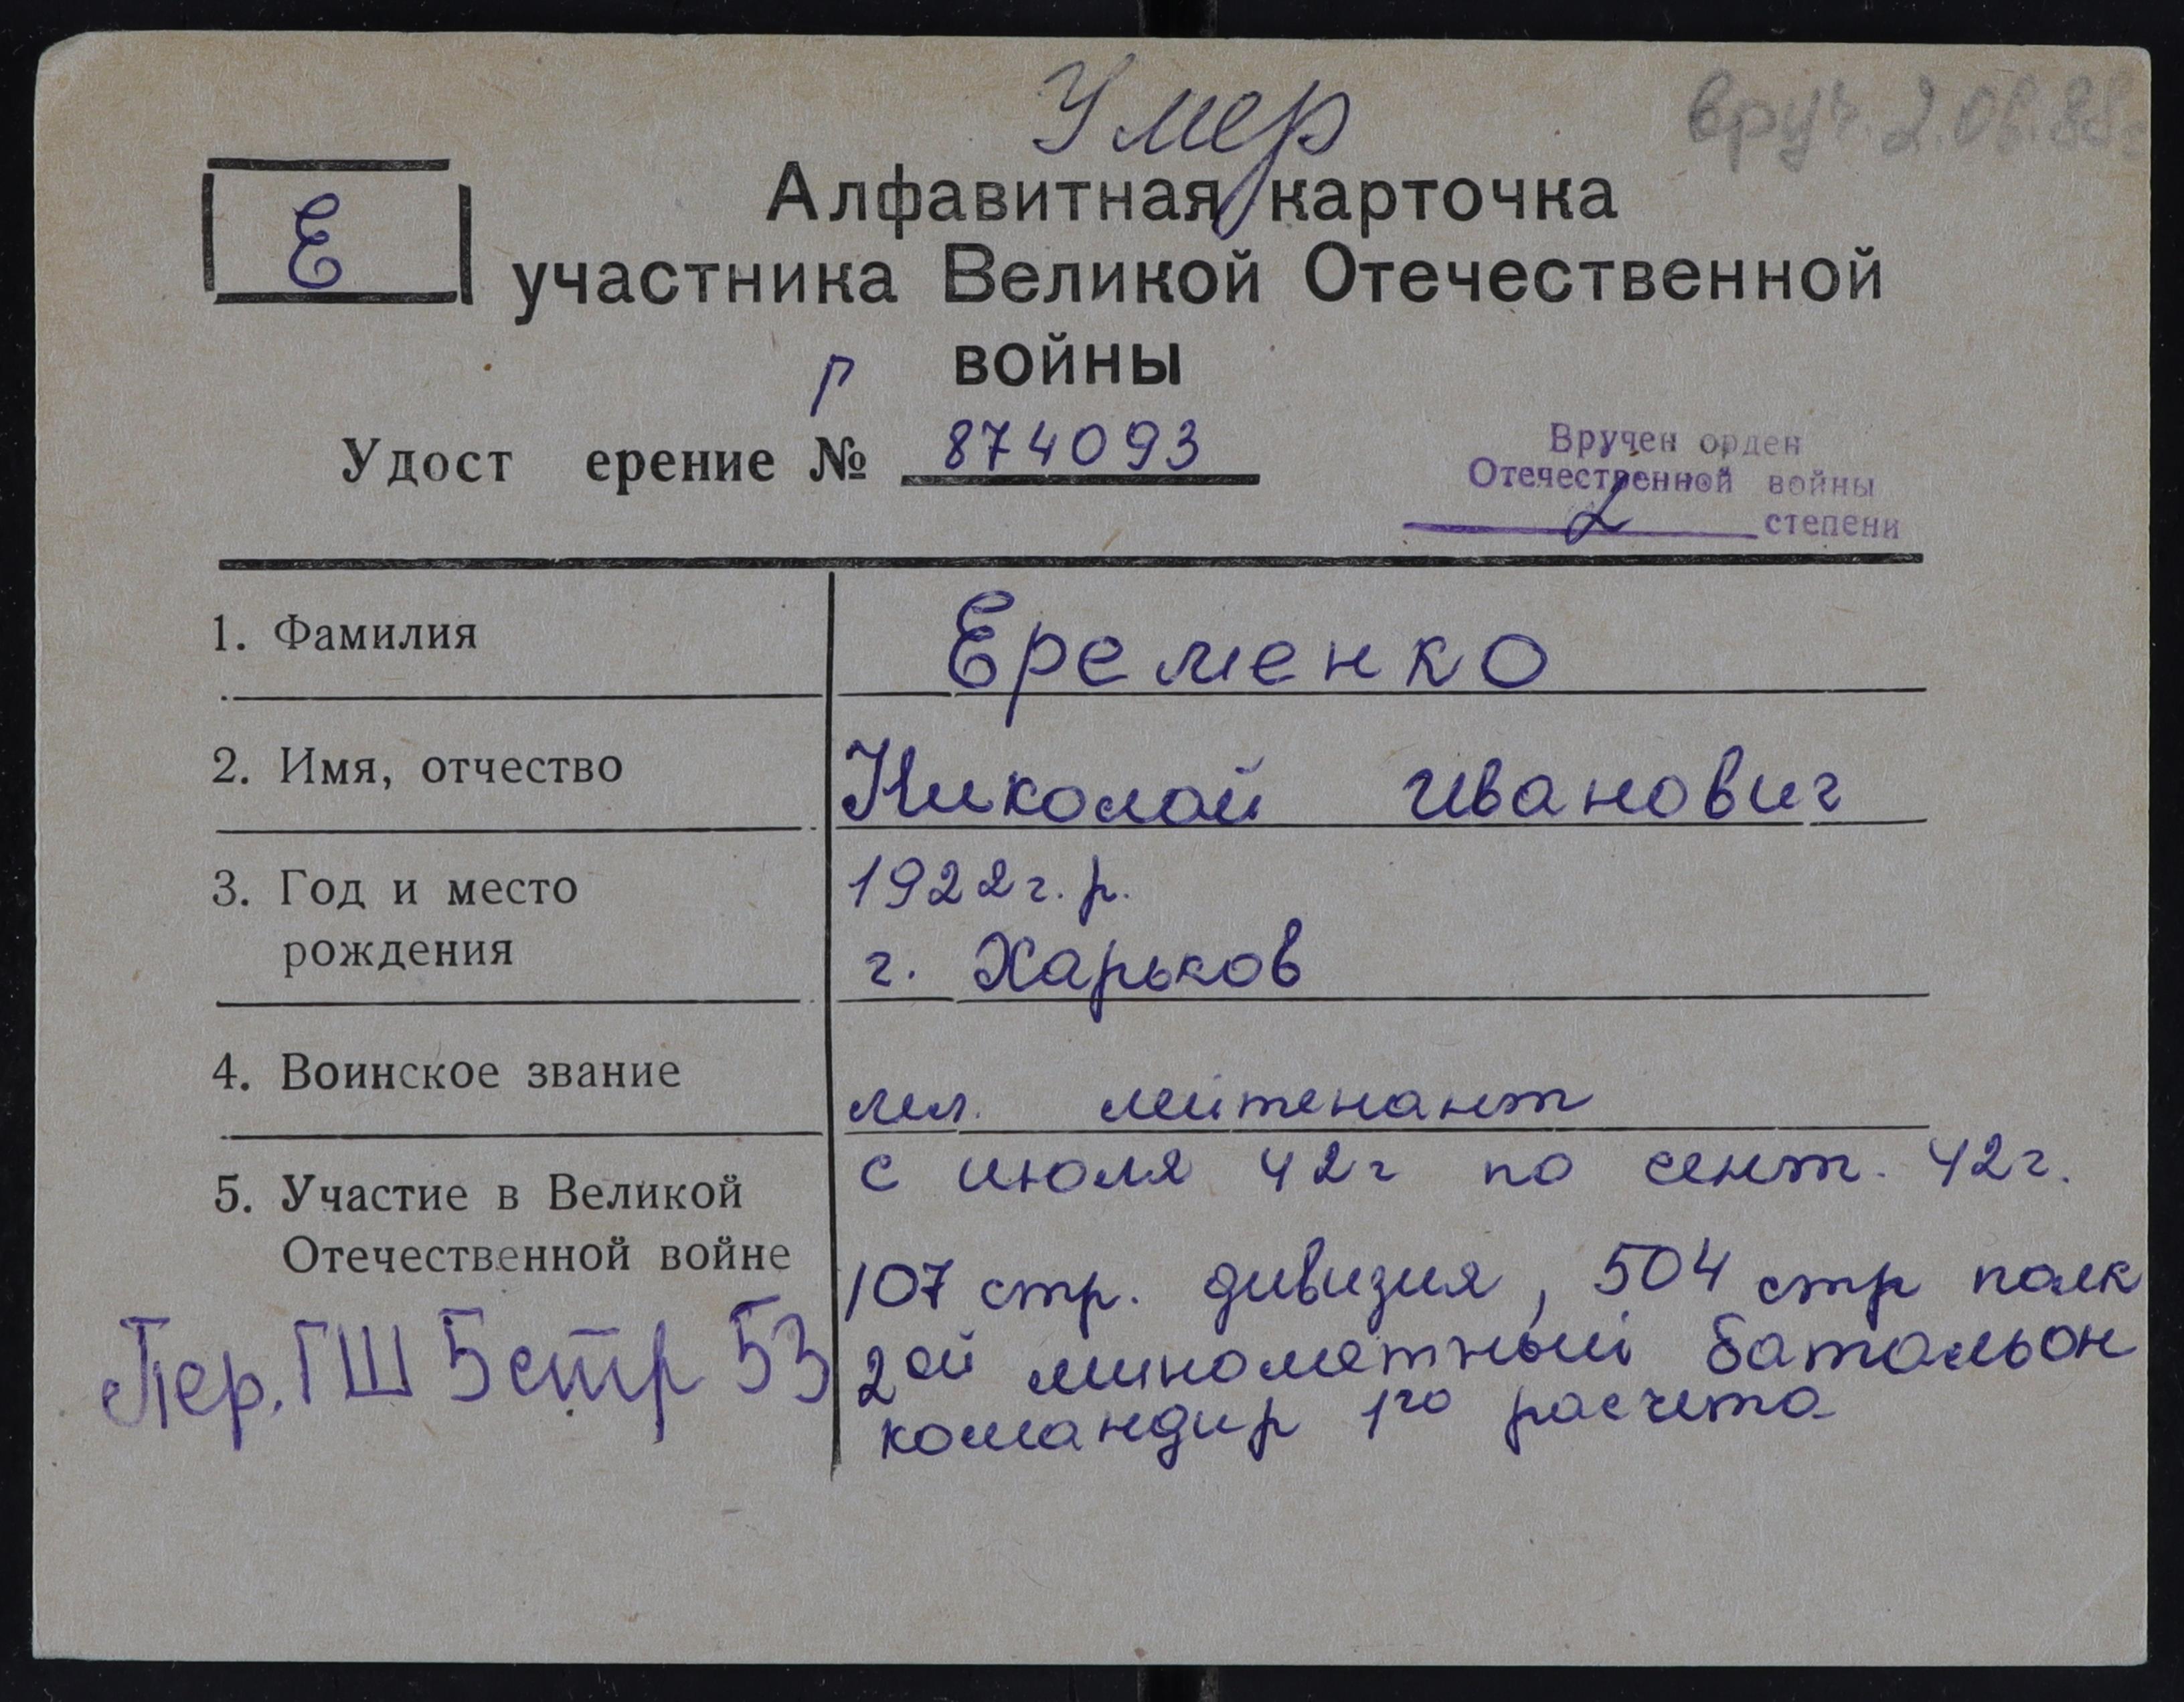 Умер
вруч. 2.06.88г
Е
Алфавитная карточка
участника Великой Отечественной
войны
Г
Удост ерение № 874093
Вручен орден
Отечественной войны
2 степени
1. Фамилия Еременко
2. Имя, отчество Николай Иванович
3. Год и место 1922 г. р.
рождения г. Харьков
4. Воинское звание мл. лейтенант
5. Участие в Великой с июля 42г по сент. 42г.
Отечественной войне 107 стр. дивизия, 504 стр полк
Пер. ГШ 5 стр 53 2ой минометный батальон
командир 1го расчета